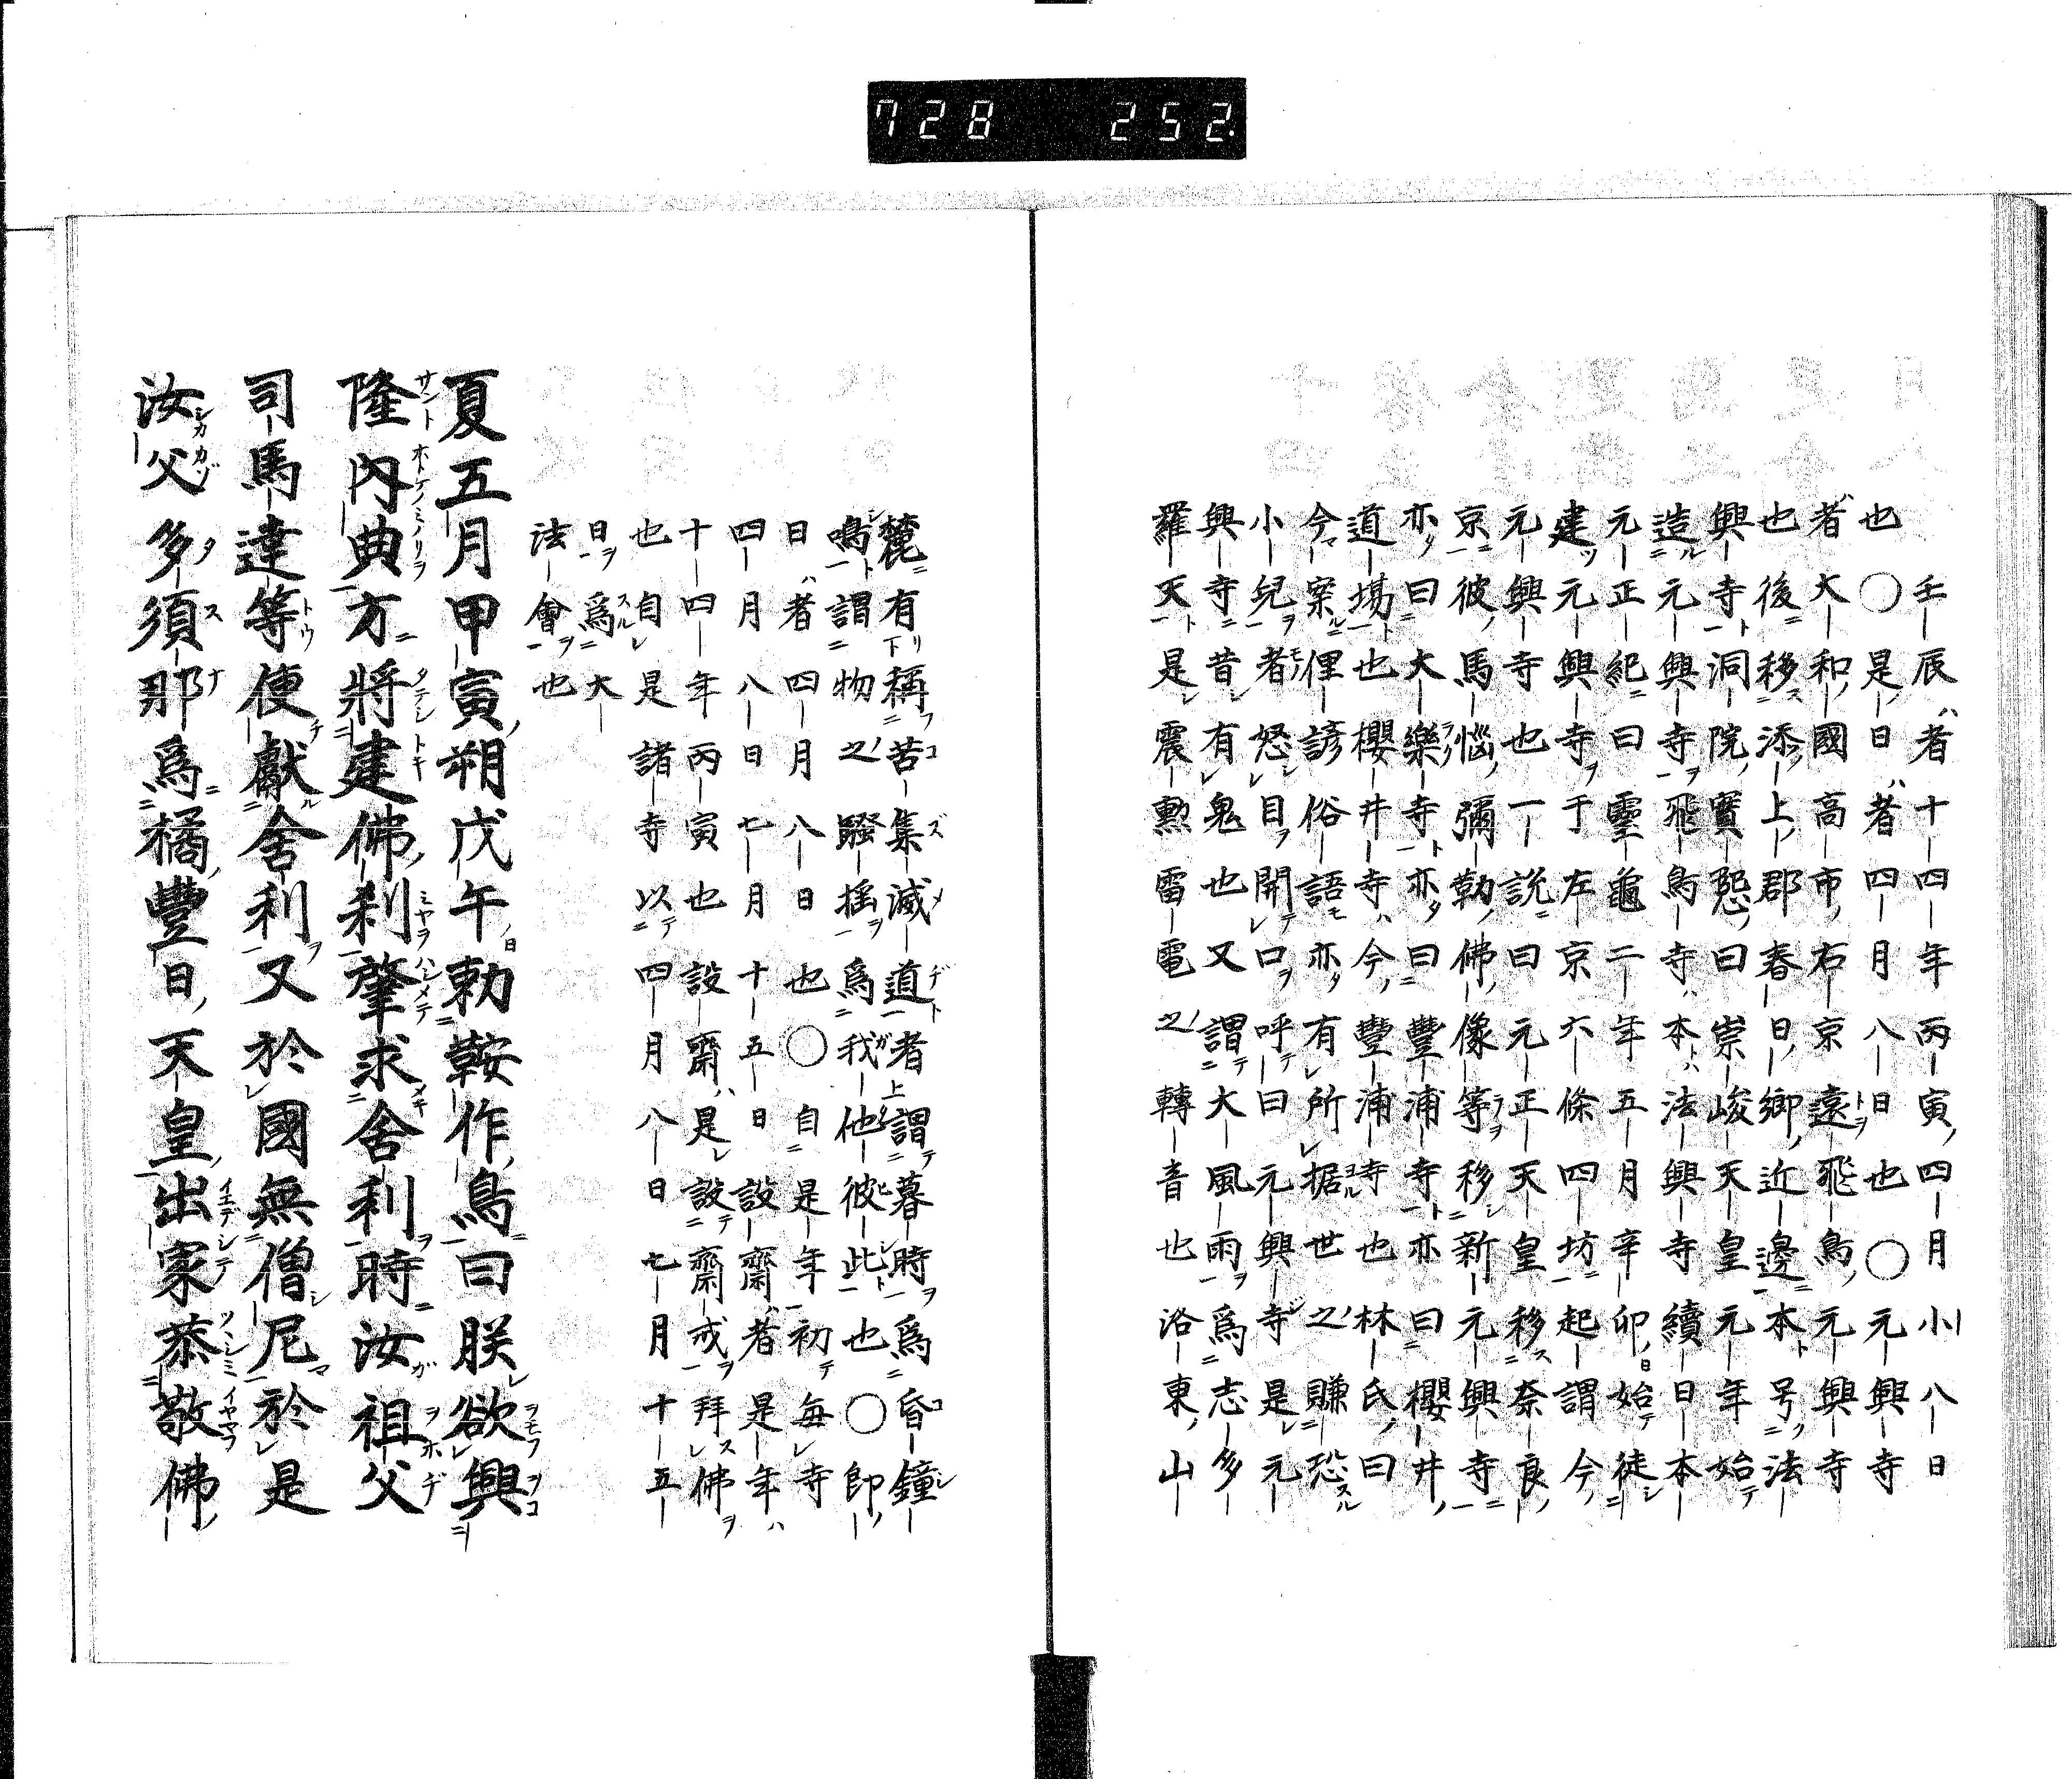 728 252.
壬辰者十四年丙寅四月小八日
也〇是日者四月八日也〇元興寺
者大和國高市右京遠飛鳥元興寺
也後移添上郡春日鄉近邊本号法
興寺洞院實熙曰崇峻天皇元年始
造元興寺飛鳥寺本法興寺續日本
元正紀曰靈龜二年五月辛卯日始徒
建元興寺于左京六條四坊起謂今
元興寺也一說曰元正天皇移奈良
京彼馬惱彌勒佛像等移新元興寺
亦曰大樂寺亦曰豐浦寺亦曰櫻井
道場也櫻井寺今豐浦寺也林氏曰
今案俚諺俗語亦有所据世之賺恐
小兒者怒目開口呼曰元興寺是元
興寺昔有鬼也又謂大風雨爲志多
羅天是震勲雷電之轉音也洛東山
麓有稱苦集滅道者謂暮時爲昏鐘
鳴謂物之騷搖爲我他彼此也〇即
日者四月八日也〇自是年初每寺
四月八日七月十五日設齋者是年
十四年丙寅也設齋是設齋戒拜佛
也自是諸寺以四月八日七月十五
日爲大
法會也
夏五月甲寅朔戊午日勅鞍作鳥曰朕欲興
隆內典方將建佛刹肇求舍利時汝祖父
司馬達等便獻舍利又於國無僧尼於是
汝父多須那爲橘豐日天皇出家恭敬佛